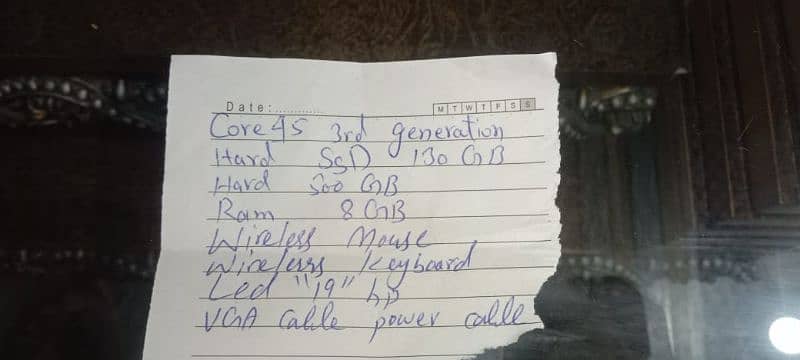 Date:............ M T W T F S S
Core 45 3rd generation
Hard SSD 130 GB
Hard 500 GB
Ram 8 GB
Wireless Mouse
Wirelerss Keyboard
Led "19" hp
VGA Calle power calle